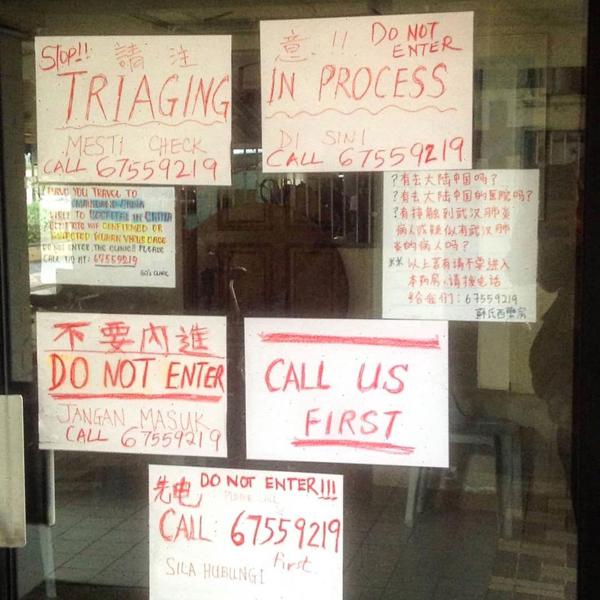 STOP!! 請 注
TRIAGING
MESTI CHECK
CALL 67559219
意 !! DO NOT
ENTER
IN PROCESS
DI SINI
CALL 67559219
YOU TRAVEL TO
MAINLAND CHINA
TO HOSPITAL IN CHINA
CONFIRMED OR
SUSPECTED WUHAN VIRUS CASE
DO NOT ENTER THE CLINIC!! PLEASE
CALL US AT: 67559219
SO'S CLINIC
? 有去大陆中国吗?
? 有去大陆中国的医院吗?
? 有接触到武汉肺炎
病人或疑似有武汉肺
炎的病人吗?
** 以上若有请不要进入
本药房,请拨电话
给我们: 67559219
蘇氏西藥房
不要內進
DO NOT ENTER
JANGAN MASUK
CALL 67559219
CALL US
FIRST
先电 DO NOT ENTER!!!
CALL: 67559219
first
SILA HUBUNGI